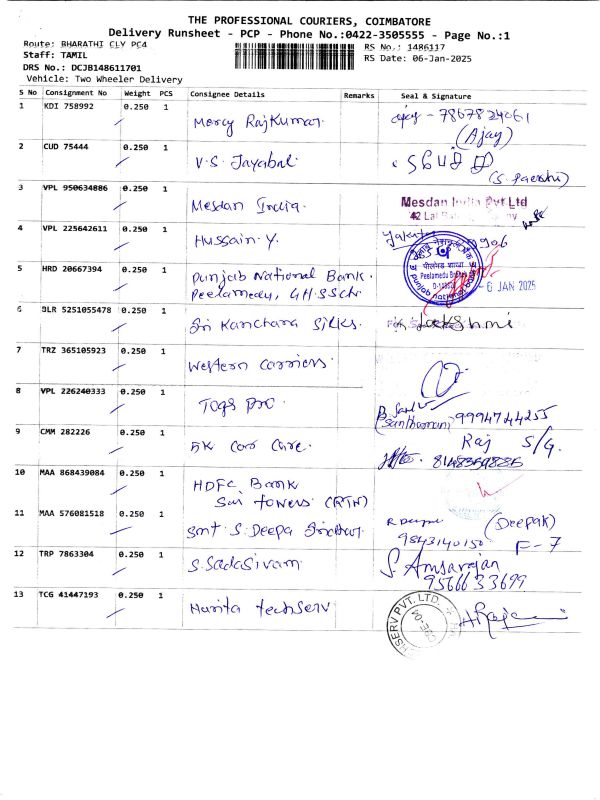 THE PROFESSIONAL COURIERS, COIMBATORE
Delivery Runsheet - PCP - Phone No.:0422-3505555 - Page No.:1
Route: BHARATHI CLY PC4
RS No.: 1486117
Staff: TAMIL
RS Date: 06-Jan-2025
DRS No.: DCJB148611701
Vehicle: Two Wheeler Delivery
S No Consignment No Weight PCS Consignee Details Remarks Seal & Signature
1 KDI 758992 0.250 1 Mercy Rajkumar. ajay - 7867824061
(Ajay)
2 CUD 75444 0.250 1 V.S. Jayabal.
3 VPL 950634886 0.250 1 Mesdan India. Mesdan India Pvt Ltd
4 VPL 225642611 0.250 1 Hussain Y.
5 HRD 20667394 0.250 1 Punjab National Bank.
Peelamedu, G.H.S.Sch
6 JAN 2025
6 BLR 5251055478 0.250 1 Sri Kanchana Silks. Lakshmi
7 TRZ 365105923 0.250 1 Western Carriers.
8 VPL 226240333 0.250 1 Togs pro.
9994744255
9 CMM 282226 0.250 1 5K Car Care. Raj S/G.
10 MAA 868439084 0.250 1 HDFC Bank
Sai Towers (RTN)
11 MAA 576081518 0.250 1 Smt S. Deepa (Deepak)
9843140150 F-7
12 TRP 7863304 0.250 1 S. Sadasivam. S. Amsarajan
9566633699
13 TCG 41447193 0.250 1 Harita techserv